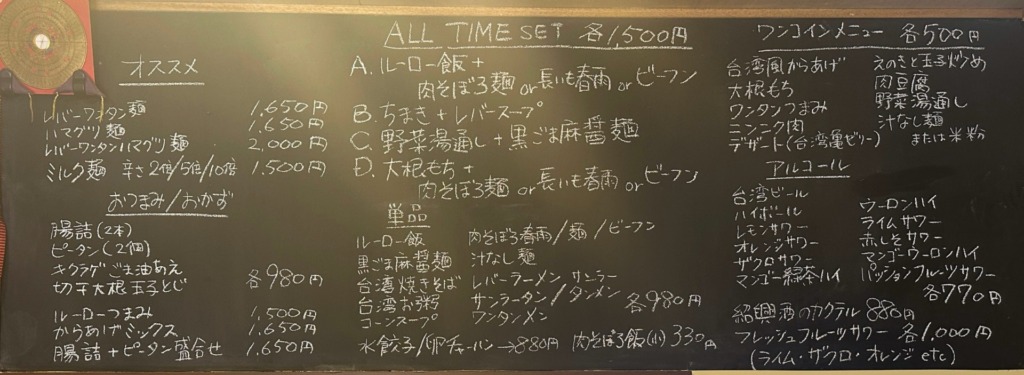 オススメ
レバーワンタン麺 1,650円
ハマグリ麺 1,650円
レバーワンタンハマグリ麺 2,000円
ミルク麺 辛さ2倍/5倍/10倍 1,500円
おつまみ/おかず
腸詰(2本)
ピータン(2個)
キクラゲごま油あえ
切干大根玉子とじ
各980円
ルーローつまみ 1,500円
からあげミックス 1,650円
腸詰+ピータン盛合せ 1,650円
ALL TIME SET 各1,500円
A. ルーロー飯+
肉そぼろ麺 or 長いも春雨 or ビーフン
B. ちまき+レバースープ
C. 野菜湯通し+黒ごま麻醤麺
D. 大根もち+
肉そぼろ麺 or 長いも春雨 or ビーフン
単品
ルーロー飯
黒ごま麻醤麺
台湾焼きそば
台湾お粥
コーンスープ
肉そぼろ春雨/麺/ビーフン
汁なし麺
レバーラーメン サンラー
サンラータン/タンメン
ワンタンメン
各980円
水餃子/卵チャーハン→880円 肉そぼろ飯(小) 330円
ワンコインメニュー 各500円
台湾風からあげ
大根もち
ワンタンつまみ
ニンニク肉
デザート(台湾亀ゼリー)
えのきと玉子炒め
肉豆腐
野菜湯通し
汁なし麺
または米粉
アルコール
台湾ビール
ハイボール
レモンサワー
オレンジサワー
ザクロサワー
マンゴー緑茶ハイ
ウーロンハイ
ライムサワー
赤しそサワー
マンゴーウーロンハイ
パッションフルーツサワー
各770円
紹興酒のカクテル 880円
フレッシュフルーツサワー 各1,000円
(ライム・ザクロ・オレンジ etc)